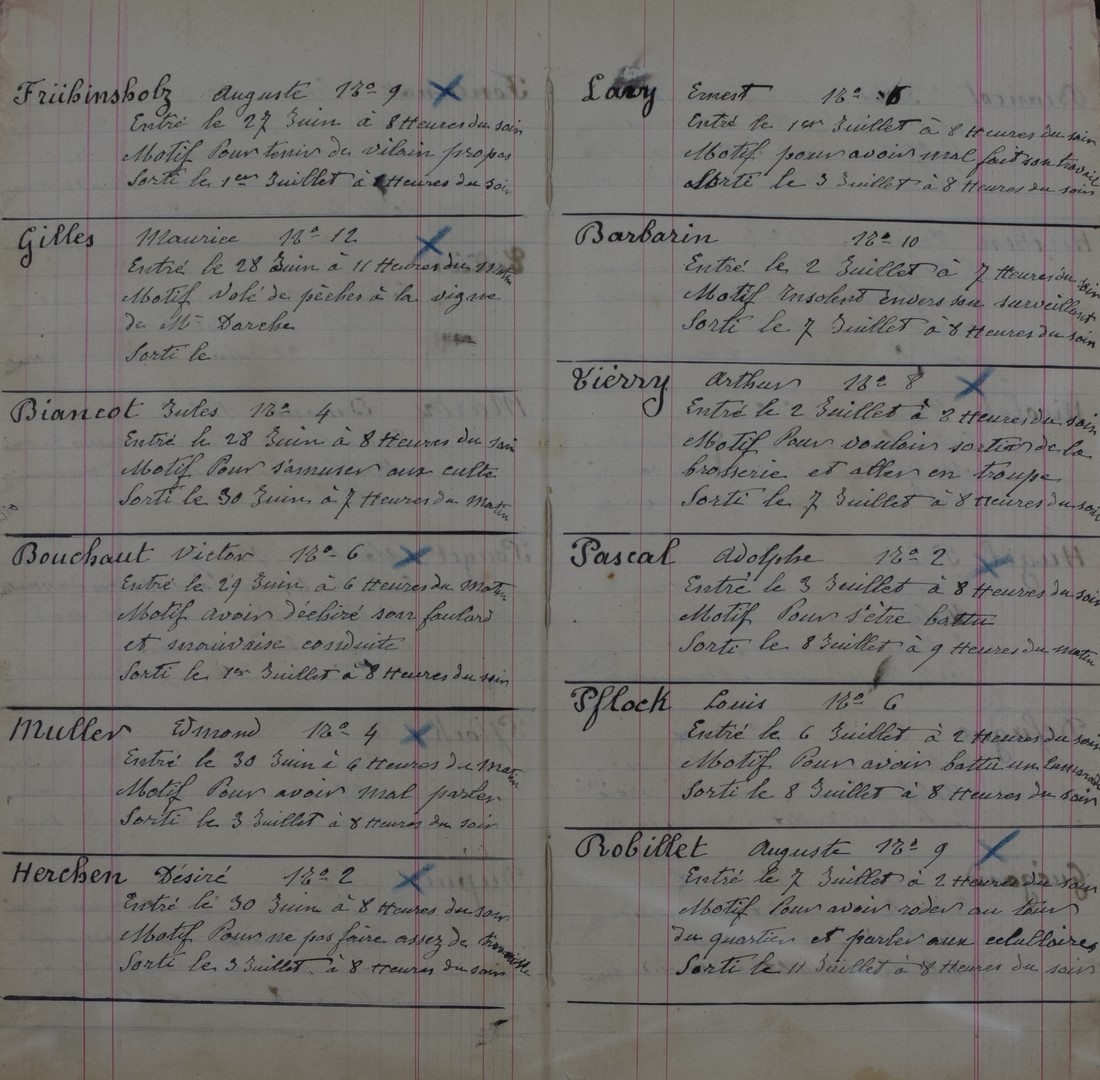 Frühinsholz Auguste No 9
Entré le 27 Juin à 8 Heures du soir
Motif Pour tenir de vilain propos
Sorti le 1er Juillet à Heures du soir
Gilles Maurice No 12
Entré le 28 Juin à 11 Heures du Matin
Motif Volé de pêches à la vigne
de Mr Darche
Sorti le
Biancot Jules No 4
Entré le 28 Juin à 8 Heures du soir
Motif Pour s'amuser aux culte
Sorti le 30 Juin à 7 Heures du Matin
Bouchaut Victor No 6
Entré le 29 Juin à 6 Heures du Matin
Motif avoir déchiré son foulard
et mauvaise conduite
Sorti le 1er Juillet à 8 Heures du soir
Muller Edmond No 4
Entré le 30 Juin à 6 Heures du Matin
Motif Pour avoir mal parler
Sorti le 3 Juillet à 8 Heures du soir
Herchen Désiré No 2
Entré le 30 Juin à 8 Heures du soir
Motif Pour ne pas faire assez de
Sorti le 3 Juillet à 8 Heures du soir
Lavy Ernest No
Entré le 1er Juillet à 8 Heures du soir
Motif pour avoir mal fait son travail
Sorti le 3 Juillet à 8 Heures du soir
Barbarin No 10
Entré le 2 Juillet à 7 Heures du soir
Motif Insolent envers son surveillant
Sorti le 7 Juillet à 8 Heures du soir
Viérry Arthur No 8
Entré le 2 Juillet à 8 Heures du soir
Motif Pour vouloir sortir de la
brosserie et aller en troupe
Sorti le 7 Juillet à 8 Heures du soir
Pascal Adolphe No 2
Entré le 3 Jeuillet à 8 Heures du soir
Motif Pour s'être battu
Sorti le 8 Juillet à 9 Heures du matin
Pflock Louis No 6
Entré le 6 Juillet à 2 Heures du soir
Motif Pour avoir battu un Camarade
Sorti le 8 Juillet à 8 Heures du soir
Robillet Auguste No 9
Entré le 7 Juillet à 2 Heures du soir
Motif Pour avoir roder au tour
du quartier et parler aux celullaires
Sorti le 11 Juillet à 8 Heures du soir